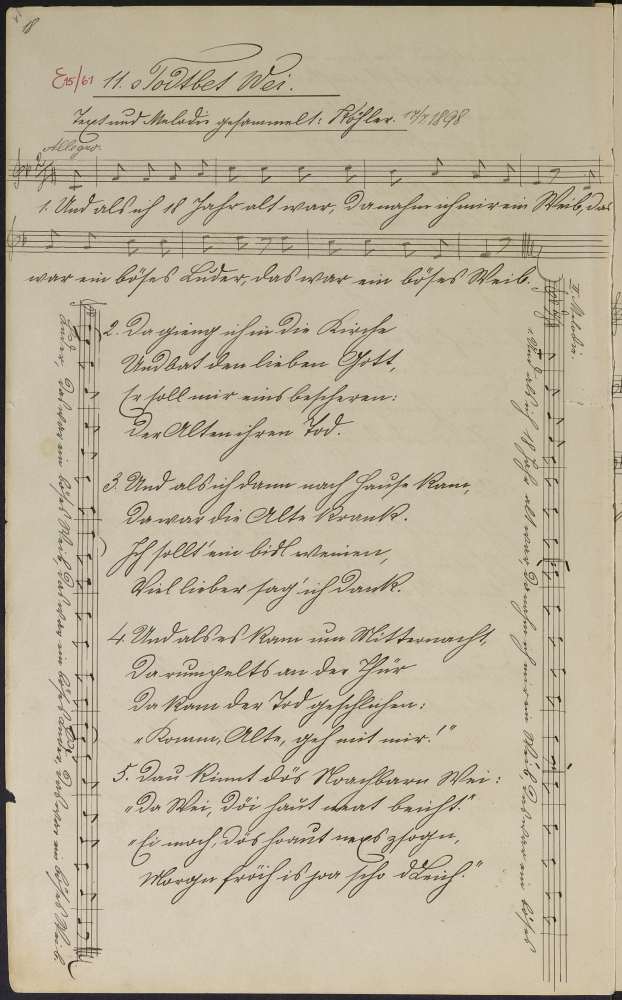 18
E 15/61 11. 's Todtbet Wei.
Text und Melodie gesammelt: Köhler. 17/7 1898
Allegro.
1. Und als ich 18 Jahr alt war, da nahm ich mir ein Weib, das
war ein böses Luder, das war ein böses Weib.
2. Da gieng ich in die Kirche
Und bat den lieben Gott,
Er soll mir eins bescheren:
Der Alten ihren Tod.
3. Und als ich dann nach Hause kam,
Da war die Alte krank.
Ich sollt' ein bisl weinen,
Viel lieber sag' ich Dank.
4. Und als es kam um Mitternacht,
Da rumpelts an der Thür
Da kam der Tod geschlichen:
"Komm, Alte, geh mit mir!"
5. Dau kinnt dös Noachbarn Wei:
"Da Wei, döi haut neat beicht."
"Ei moch, dös haut nex zsogn,
Morgn fröih is joa scho d'Leich."
II. Melodie.
1. Und als ich 18 Jahr alt war, da nahm ich mir ein Weib, das war ein böses
Luder, das war ein böses Weib, das war ein böses Luder, das war ein böses Weib.